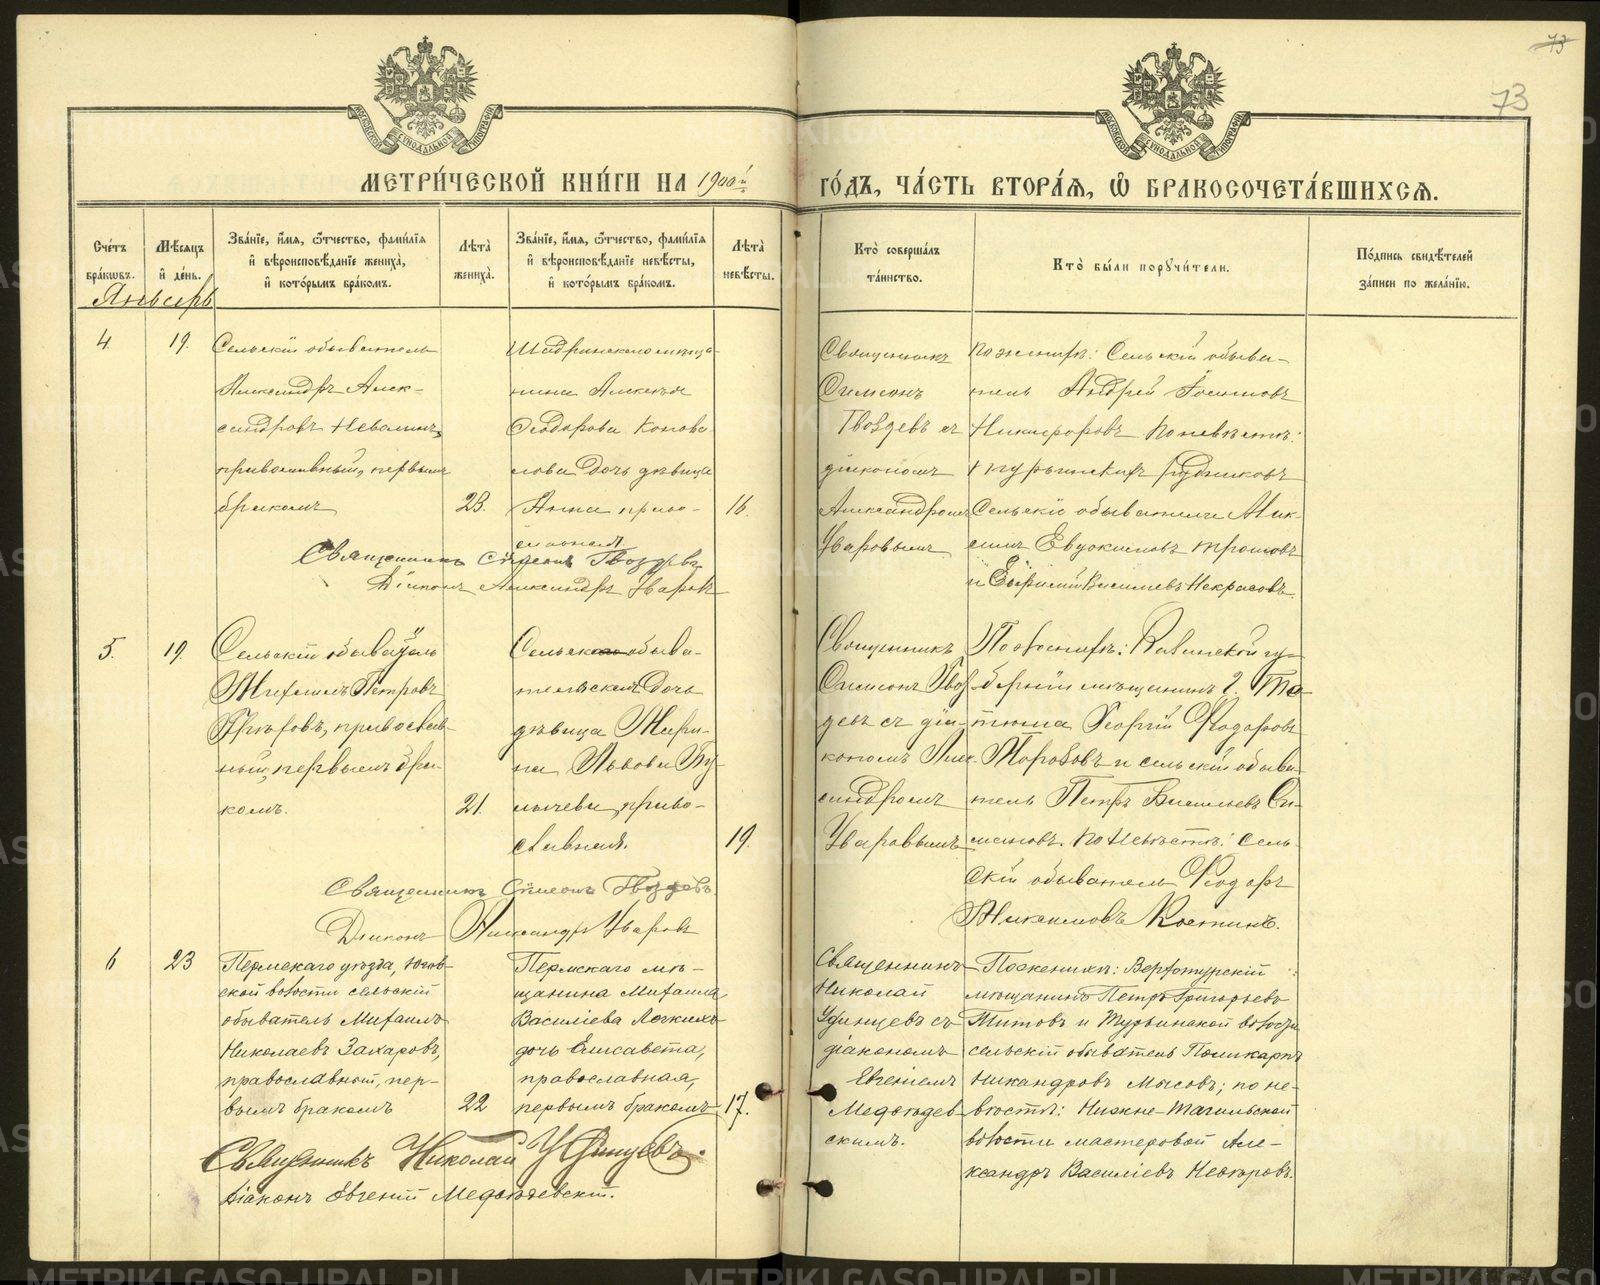 73
73
МОСКОВСКОЙ СѴНОДАЛЬНОЙ ТИПОГРАФІИ
МОСКОВСКОЙ СѴНОДАЛЬНОЙ ТИПОГРАФІИ
МЕТРИ́ЧЕСКОЙ КНИ́ГИ НА 1900й
ГО́ДЪ, ЧА́СТЬ ВТОРА́Ѧ, Ѡ҆ БРАКОСОЧЕТА́ВШИХСѦ.
Сче́тъ бра́кѡвъ.
Мѣ́сѧцъ и҆ де́нь.
Зва́нїе, и҆́мѧ, ѻ҆́тчество, фами́лїѧ и҆ вѣроисповѣ́данїе жениха̀, и҆ кото́рымъ бра́комъ.
Лѣта̀ жениха̀.
Зва́нїе, и҆́мѧ, ѻ҆́тчество, фами́лїѧ и҆ вѣроисповѣ́данїе невѣ́сты, и҆ кото́рымъ бра́комъ.
Лѣта̀ невѣ́сты.
Кто̀ соверша́лъ та́инство.
Кто̀ бы́ли порꙋчи́тели.
По́дпись свидѣ́телей за́писи по жела́нїю.
Январь
4.
19.
Сельскій обыватель
Александръ Алек-
сандровъ Невалинъ,
православный, первымъ
бракомъ
23.
Шадринскаго мѣща-
нина Алексѣя
Ѳедорова Конова-
лова дочь дѣвица
Анна право-
славная
16.
Священникъ
Симеонъ
Гвоздевъ съ
діакономъ
Александромъ
Уваровымъ
По женихѣ: Сельскій обыва-
тель Андрей
Никифоровъ По невѣстѣ:
Рудниковъ
Сельскіе обыватели Мак-
симъ Евдокимовъ
и Ефимій Васильевъ Некрасовъ.
Священникъ Симеонъ Гвоздевъ
Діаконъ Александръ Уваровъ
5.
19.
Сельскій обыватель
Михаилъ Петровъ
православ-
ный, первымъ бра-
комъ.
21.
Сельскаго обыва-
тельская дочь
дѣвица Мари-
на Львова Пу-
право-
славная.
19.
Священникъ
Симеонъ Гвоз-
девъ съ діа-
кономъ Алек-
сандромъ
Уваровымъ
По женихѣ: Казанской гу-
берніи мѣщанинъ г.
Георгій Ѳедоровъ
Морозовъ и сельскій обыва-
тель Петръ Васильевъ Си-
мановъ. По невѣстѣ: Сель-
скій обыватель Ѳедоръ
Максимовъ Костинъ.
Священникъ Симеонъ Гвоздевъ.
Діаконъ Александръ Уваровъ
6
23
Пермскаго уѣзда, Югов-
ской волости сельскій
обыватель Михаилъ
Николаевъ Захаровъ,
православный, пер-
вымъ бракомъ
22
Пермскаго мѣ-
щанина Михаила
Василіева Легкихъ
дочь Елисавета,
православная,
первымъ бракомъ
17.
Священникъ
Николай
Удинцевъ съ
діакономъ
Евгеніемъ
Медвѣдев-
скимъ.
По женихѣ: Верхотурскій
мѣщанинъ Петръ Григорьевъ
Титовъ и Турьинской волости
сельскій обыватель Поликарпъ
Никандровъ Мысовъ; по не-
вѣстѣ: Нижне-Тагильской
волости мастеровой Але-
ксандръ Василіевъ
Священникъ Николай Удинцевъ.
Діаконъ Евгеній Медвѣдевскій.
METRIKI.GASO-URAL.RU